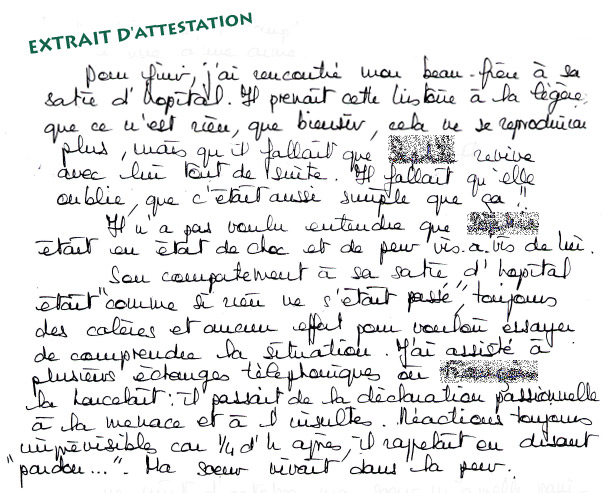 EXTRAIT D'ATTESTATION
Pour finir, j'ai rencontré mon beau-frère à sa
sortie d'hôpital. Il prenait cette histoire à la légère,
que ce n'est rien, que bientôt, cela ne se reproduira
plus, mais qu'il fallait que revive
avec lui tout de suite. Il fallait qu'elle
oublie, que c'était aussi simple que ça !!
Il n'a pas voulu entendre que
était en état de choc et de peur vis.a.vis de lui.
Son comportement à sa sortie d'hopital
était "comme si rien ne s'était passé", toujours
des colères et aucun effort pour vouloir essayer
de comprendre la situation. J'ai assisté à
plusieurs échanges téléphoniques où
la : il passait de la déclaration passionnelle
à la menace et à l'insultes. Réactions toujours
imprévisibles car 1/4 d'h après, il rappelait en disant
"pardon...". Ma soeur vivait dans la peur.